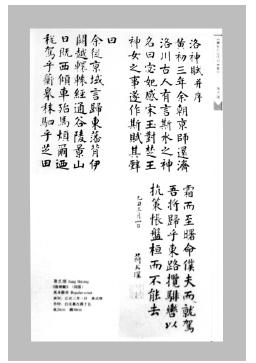 洛神賦并序
黃初三年余朝京師還濟
洛川古人有言斯水之神
名曰宓妃感宋玉對楚王
神女之事遂作斯賦其辭
曰
余從京域言歸東藩背伊
闕越轘轅經通谷陵景山
日既西傾車殆馬煩爾迺
稅駕乎蘅皋秣駟乎芝田
霜而至曙命僕夫而就駕
吾將歸乎東路攬騑轡以
抗策悵盤桓而不能去
《洛神賦》(局部)
Regular script